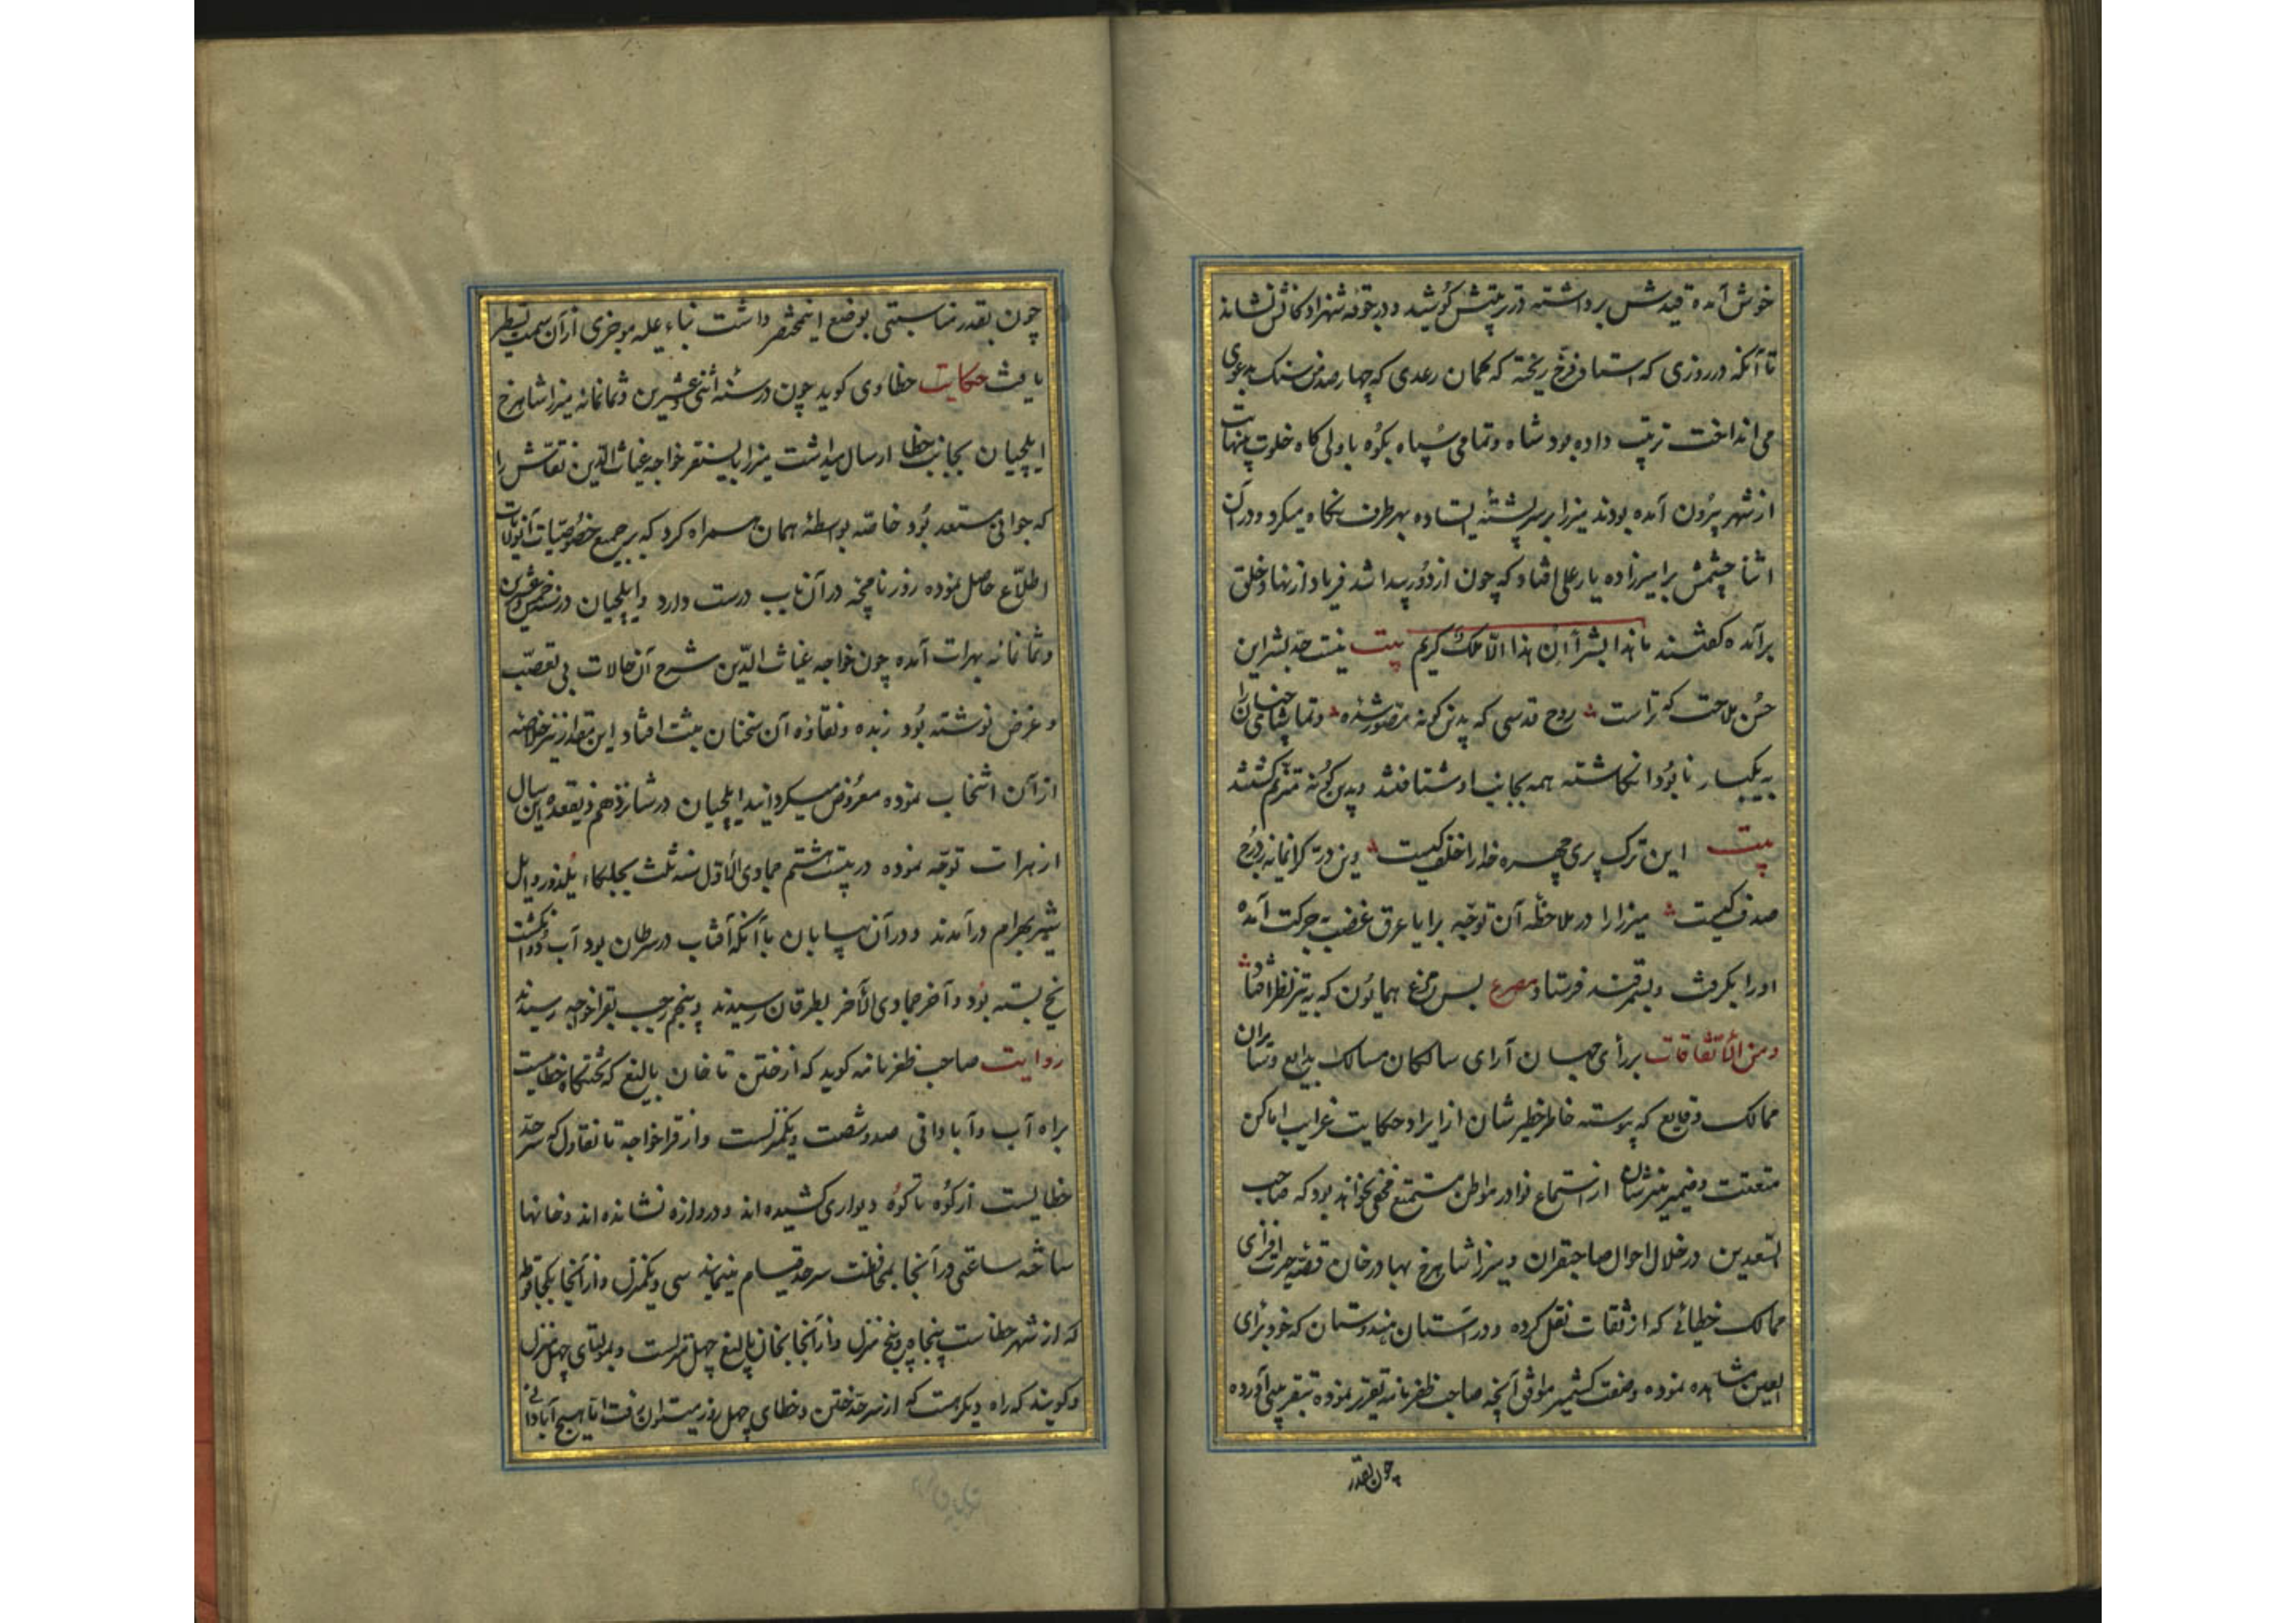 خوش آمده قیدش برداشته در تربیتش کوشید و در جوقه شهزادکانش نشاند
تا آنکه در روزی که استا فرخ ریخته که کمان رعدی که چهار صد من سنک بدعوی
می انداخت ترتیب داده بود شاه و تمامی سپاه بکوه با ولی کاه خلوت
از شهر بیرون آمده بودند میرزا بر سر پشته ایستاده بهر طرف نکاه میکرد و در آن
اثنا چشمش بر امیرزاده یار علی افتاد که چون از دور پیدا شد فریاد از نهاد خلق
برآمده کفتند ما هذا بشرا ان هذا الا ملک کریم بیت نیست حد بشر این
حسن ملاحت که تراست روح قدسی که بدین کونه مصور شده و تماشاچیان
به یکبار نابود انکاشته همه بجانب او شتافتند و بدین کونه مترنم کشتند
بیت این ترک پری چهره خدا را خلف کیست وین در کرانمایه ز درج
صدف کیست میرزا را در ملاحظه آن توجه برایا عرق غضب بحرکت آمده
او را بکرفت و بسمرقند فرستاد مصرع بس مرغ همایون که به تیر نظر افتاد
و من الاتفاقات بر رأی جهان آرای سالکان مسالک بدایع و سیاران
ممالک وقایع که پیوسته خاطر خطیرشان از ایراد حکایت غرایب اماکن
متعتت و ضمیر منیرشان از استماع نوادر مواطن مستمتع مخفی نخواهد بود که صاحب
السعدین در خلال احوال صاحبقران و میرزا شاهرخ بهادرخان قصه حیرت افزای
ممالک خطائی که از ثقات نقل کرده و در استان هندوستان که خود برای
العین مشاهده نموده و صفت کشمیر موافق آنچه صاحب ظفرنامه تقریر نموده بتقریبی آورده
چون بقدر
چون بقدر مناسبتی بوضع اینمختصر داشت بناء علیه موجزی از آن سمت تسطیر
یافت حکایت خطا وی کوید چون در سنه اثنی و عشرین و ثمانمائه میرزا شاهرخ
ایلچیان بجانب خطا ارسال میداشت میرزا بایسنقر خواجه غیاث الدین نقاش را
که جوانی مستعد بود خاصه بواسطه همان همراه کرد که بر جمیع خصوصیات آنولایات
اطلاع حاصل نموده روزنامچه در آن باب درست دارد و ایلچیان در سنه خمس و عشرین
و ثمانمانه بهرات آمده چون خواجه غیاث الدین شرح آن حالات بی تعصب
و غرض نوشته بود زبده و نقاوه آن سخنان مثبت افتاد این مقدار نیز خلاصه
از آن انتخاب نموده معروض میکرداند ایلچیان در شانزدهم ذیقعده این سال
از هرات توجه نموده در بیست هشتم جمادی الاول سنه ثلث بجلکاء یلدوز و ایل
شیر بهرام درآمدند و در آن بیابان با آنکه آفتاب در سرطان بود آب دو انکشت
یخ بسته بود و آخر جمادی الآخر بطرقان رسیدند و پنجم رجب بقراخواجه رسیدند
روایت صاحب ظفرنامه کوید که از ختن تا خان بالیغ که تختکاه خطاست
براه آب و آبادانی صد و شصت و یکمنزلست و از قراخواجه تا نقاول که سرحد
خطا یست از کوه تا کوه دیواری کشیده اند و دروازه نشانده اند و خانها
ساخته ساعتی در آنجا بمحافظت سرحد قیام مینمایند سی و یکمنزل و از آنجا بکجاقو
که از شهر خطاست پنجاه و پنج منزل و از آنجا بخان بالیغ چهل منزلست و بمولتای چهل منزل
و کویند که راه دیکر هست که از سرحد ختن و خطای چهل روز میتوان رفت اما هیچ آبادانی